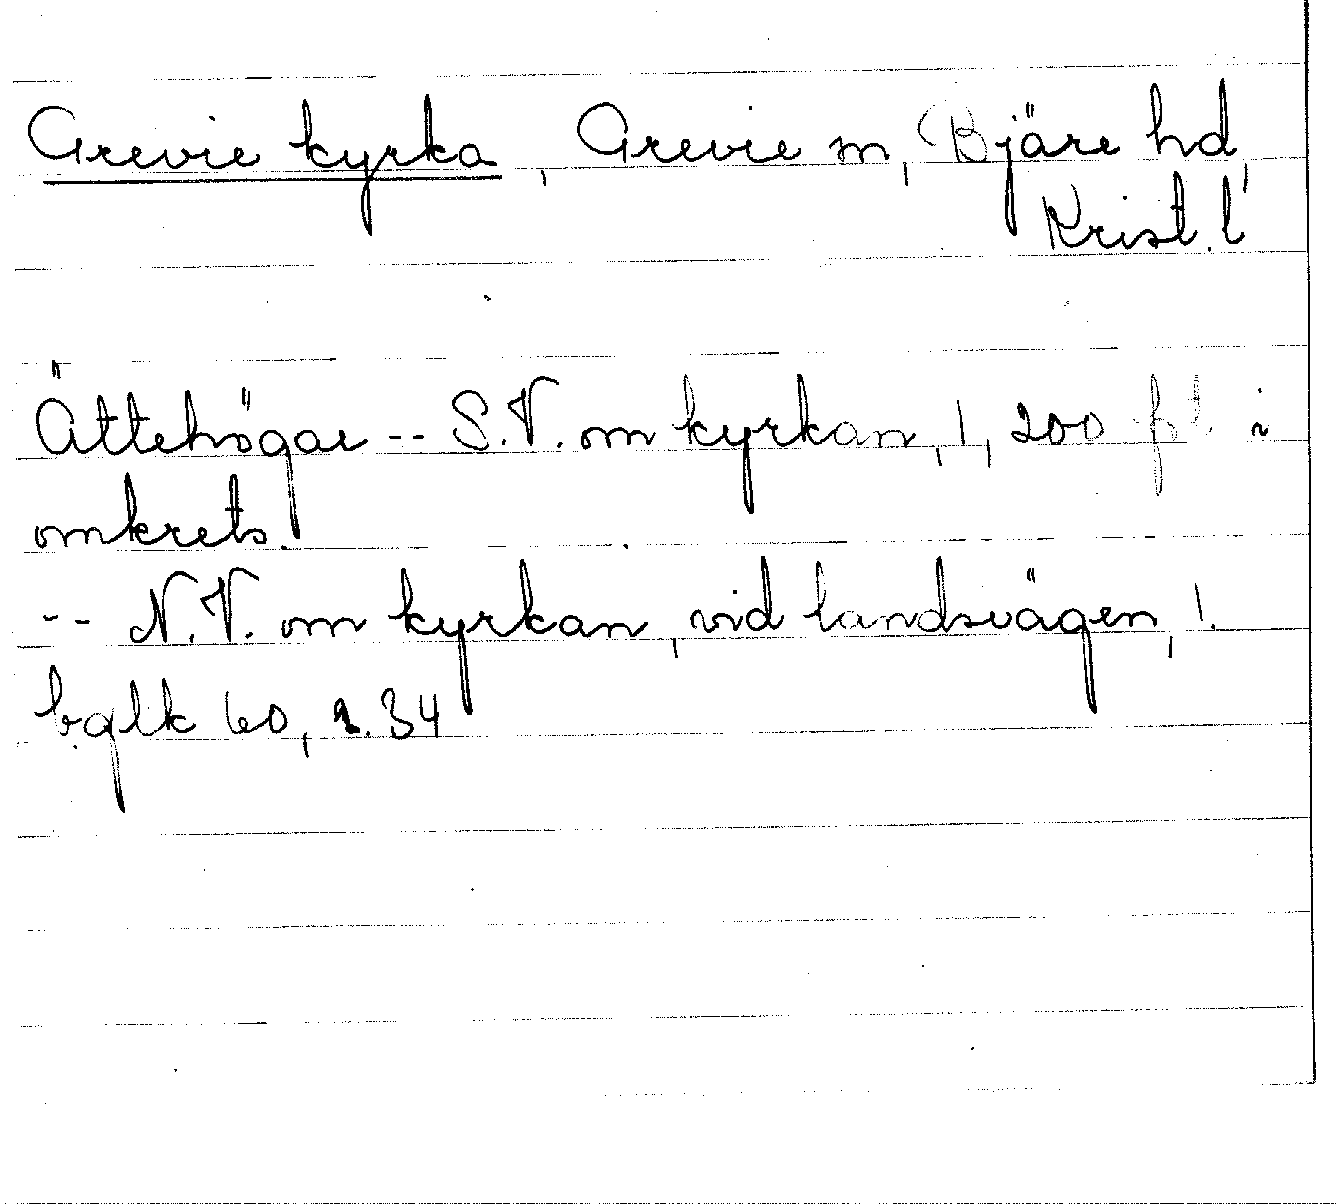 Grevie kyrka, Grevie sn, Bjäre hd,
Krist. l
Ättehögar -- S.V. om kyrkan, 1, 200 fot i
omkrets.
-- N.V. om kyrkan, vid landsvägen, 1.
bglk 60, s. 34